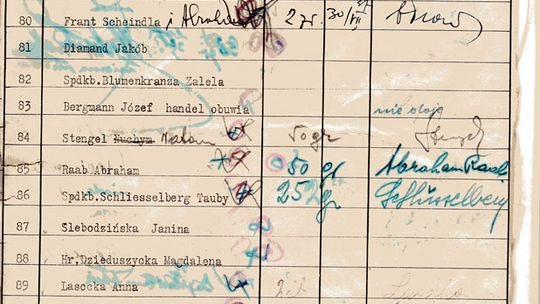 80 Frant Scheindla i Abraham 2 gr. 30/VII
81 Diamand Jakób
82 Spdkb.Blumenkranza Zalela
83 Bergmann Józef handel obuwia nie daje
84 Stengel Nuchym Natan 50 gr
85 Raab Abraham 50 gr Abraham Raab
86 Spdkb.Schliesselberg Tauby 25 gr Schlüsselberg
87 Slebodzińska Janina
88 Hr.Dzieduszycka Magdalena
89 Lasocka Anna 2 zł